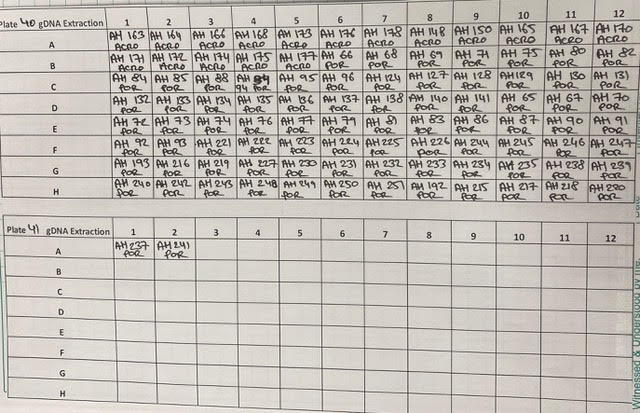 Plate 40 gDNA Extraction 1 2 3 4 5 6 7 8 9 10 11 12
A AH 163 ACRO AH 164 ACRO AH 166 ACRO AH 168 ACRO AH 173 ACRO AH 176 ACRO AH 178 ACRO AH 148 ACRO AH 150 ACRO AH 165 ACRO AH 167 ACRO AH 170 ACRO
B AH 171 ACRO AH 172 ACRO AH 174 ACRO AH 175 ACRO AH 177 ACRO AH 66 POR AH 68 POR AH 69 POR AH 71 POR AH 75 POR AH 80 POR AH 82 POR
C AH 84 POR AH 85 POR AH 88 POR AH 94 POR AH 95 POR AH 96 POR AH 124 POR AH 127 POR AH 128 POR AH 129 POR AH 130 POR AH 131 POR
D AH 132 POR AH 133 POR AH 134 POR AH 135 POR AH 136 POR AH 137 POR AH 138 POR AH 140 POR AH 141 POR AH 65 POR AH 67 POR AH 70 POR
E AH 72 POR AH 73 POR AH 74 POR AH 76 POR AH 77 POR AH 79 POR AH 81 POR AH 83 POR AH 86 POR AH 87 POR AH 90 POR AH 91 POR
F AH 92 POR AH 93 POR AH 221 POR AH 222 POR AH 223 POR AH 224 POR AH 225 POR AH 226 POR AH 244 POR AH 245 POR AH 246 POR AH 247 POR
G AH 193 POR AH 216 POR AH 219 POR AH 227 POR AH 230 POR AH 231 POR AH 232 POR AH 233 POR AH 234 POR AH 235 POR AH 238 POR AH 239 POR
H AH 240 POR AH 242 POR AH 243 POR AH 248 POR AH 249 POR AH 250 POR AH 251 POR AH 192 POR AH 215 POR AH 217 POR AH 218 POR AH 220 POR
Plate 41 gDNA Extraction 1 2 3 4 5 6 7 8 9 10 11 12
A AH 237 POR AH 241 POR
B
C
D
E
F
G
H
Witnessed & Understood by me,